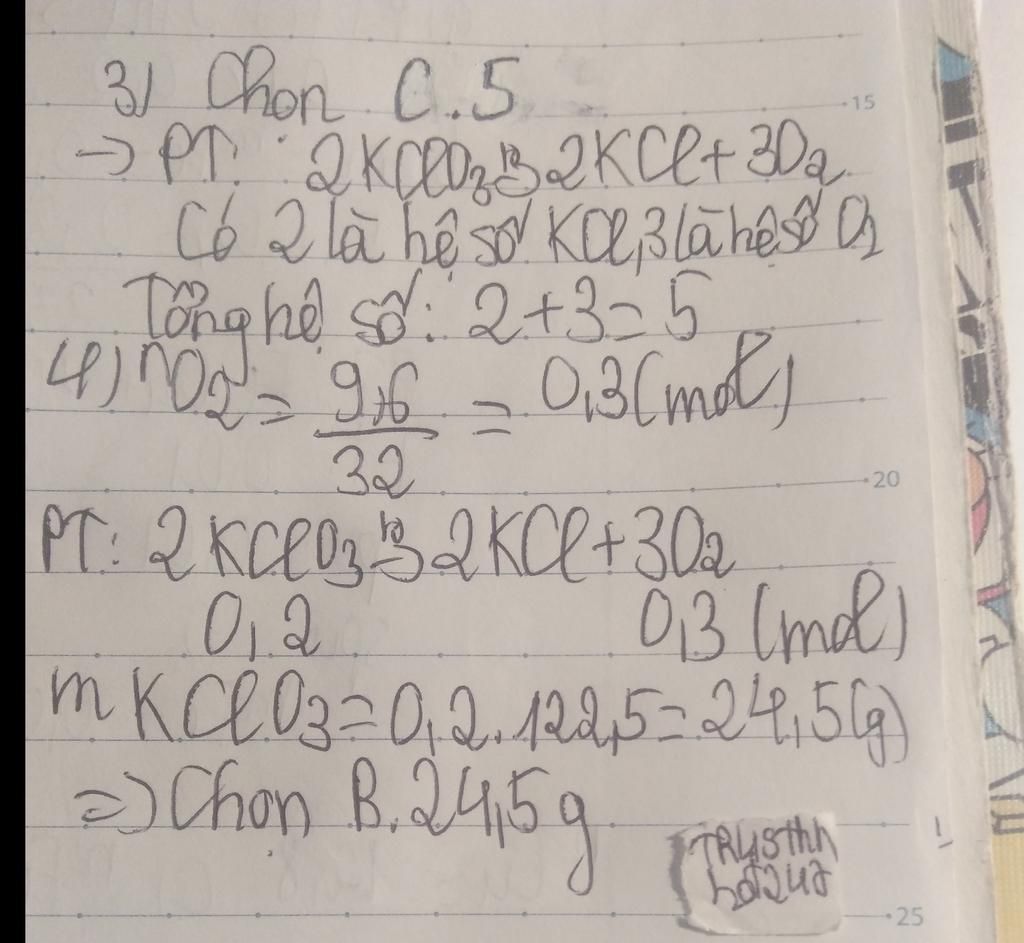 3) Chon C.5
15
→ PT: 2KClO3 t° → 2KCl + 3O2
Có 2 là hệ số KCl, 3 là hệ số O2
Tổng hệ số: 2+3=5
4) nO2 = 9,6/32 = 0,3 (mol)
20
PT: 2KClO3 t° → 2KCl + 3O2
0,2 0,3 (mol)
mKClO3 = 0,2.122,5 = 24,5(g)
=> Chon B. 24,5g
25